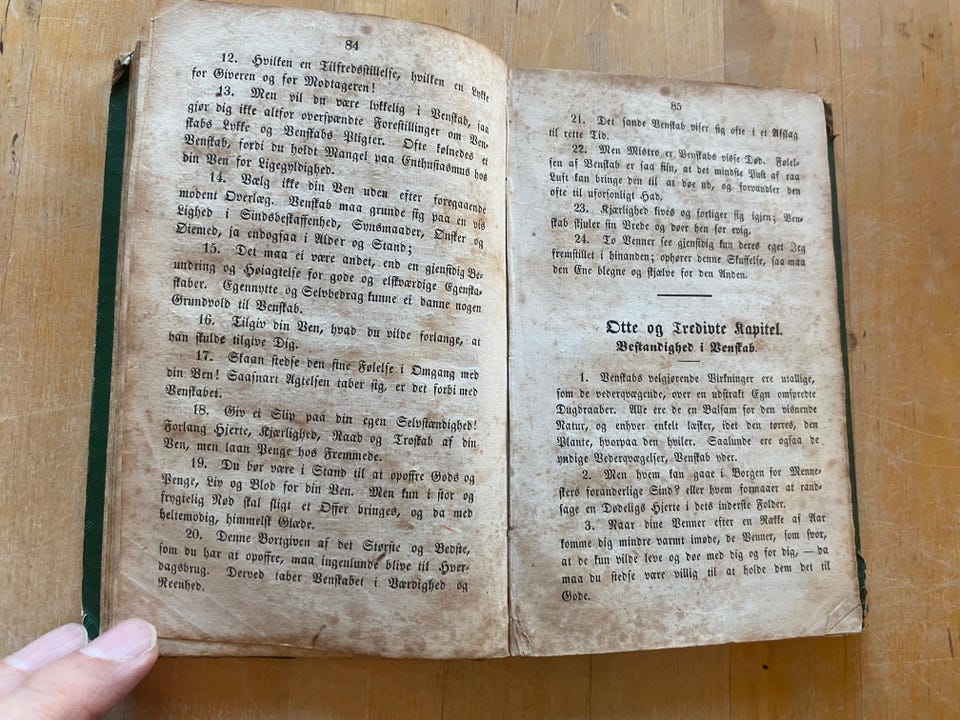 84
12. Hvilken en Tilfredsstillelse, hvilken en Lykke
for Giveren og for Modtageren!
13. Men vil du være lykkelig i Venskab, saa
gjør dig ikke altfor overspændte Forestillinger om Ven-
skabs Lykke og Venskabs Pligter. Ofte kølnedes et
Venskab, fordi du holdt Mangel paa Enthusiasmus hos
din Ven for Ligegyldighed.
14. Vælg ikke din Ven uden efter foregaaende
modent Overlæg. Venskab maa grunde sig paa en vis
Lighed i Sindsbeskaffenhed, Synsmaader, Ønsker og
Øiemed, ja endogsaa i Alder og Stand;
15. Det maa ei være andet, end en gjensidig Be-
undring og Høiagtelse for gode og elskværdige Egenska-
skaber. Egennytte og Selvbedrag kunne ei danne nogen
Grundvold til Venskab.
16. Tilgiv din Ven, hvad du vilde forlange, at
han skulde tilgive Dig.
17. Skaan stedse den fine Følelse i Omgang med
din Ven! Saasnart Agtelsen taber sig, er det forbi med
Venskabet.
18. Giv ei Slip paa din egen Selvstændighed!
Forlang Hjerte, Kjærlighed, Raad og Troskab af din
Ven, men laan Penge hos Fremmede.
19. Du bør være i Stand til at opoffre Gods og
Penge, Liv og Blod for din Ven. Men kun i stor og
frygtelig Nød skal sligt et Offer bringes, og da med
heltemodig, himmelsk Glæde.
20. Denne Bortgiven af det Største og Bedste,
som du har at opoffre, maa ingenlunde blive til Hver-
dagsbrug. Derved taber Venskabet i Værdighed og
Reenhed.
85
21. Det sande Venskab viser sig ofte i et Afslag
til rette Tid.
22. Men Mistro er Venskabs visse Død. Følel-
sen af Venskab er saa fiin, at det mindste Pust af raa
Luft kan bringe den til at døe ud, og forvandler den
ofte til uforsonligt Had.
23. Kjærlighed kives og forliger sig igjen; Ven-
skab skjuler sin Vrede og døer hen for evig.
24. To Venner see gjensidig kun deres eget Jeg
fremstillet i hinanden; ophører denne Skuffelse, saa maa
den Ene blegne og skjælve for den Anden.
Otte og Tredivte Kapitel.
Bestandighed i Venskab.
1. Venskabs velgjørende Virkninger ere utallige,
som de vederqvægende, over en udstrakt Egn omspredte
Dugdraaber. Alle ere de en Balsam for den visnende
Natur, og enhver enkelt læsker, idet den tørres, den
Plante, hvorpaa den hviler. Saalunde ere ogsaa de
yndige Vederqvægelser, Venskab yder.
2. Men hvem kan gaae i Borgen for Menne-
skers foranderlige Sind? eller hvem formaaer at rand-
sage en Dødeligs Hjerte i dets inderste Folder.
3. Naar dine Venner efter en Række af Aar
komme dig mindre varmt imøde, de Venner, som svor,
at de kun vilde leve og døe med dig og for dig, — da
maa du stedse være villig til at holde dem det til
Gode.